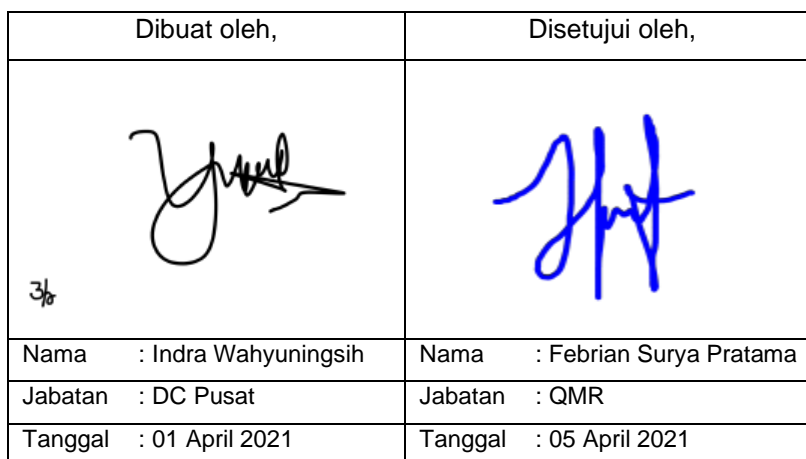 Dibuat oleh, Disetujui oleh,
Nama : Indra Wahyuningsih Nama : Febrian Surya Pratama
Jabatan : DC Pusat Jabatan : QMR
Tanggal : 01 April 2021 Tanggal : 05 April 2021